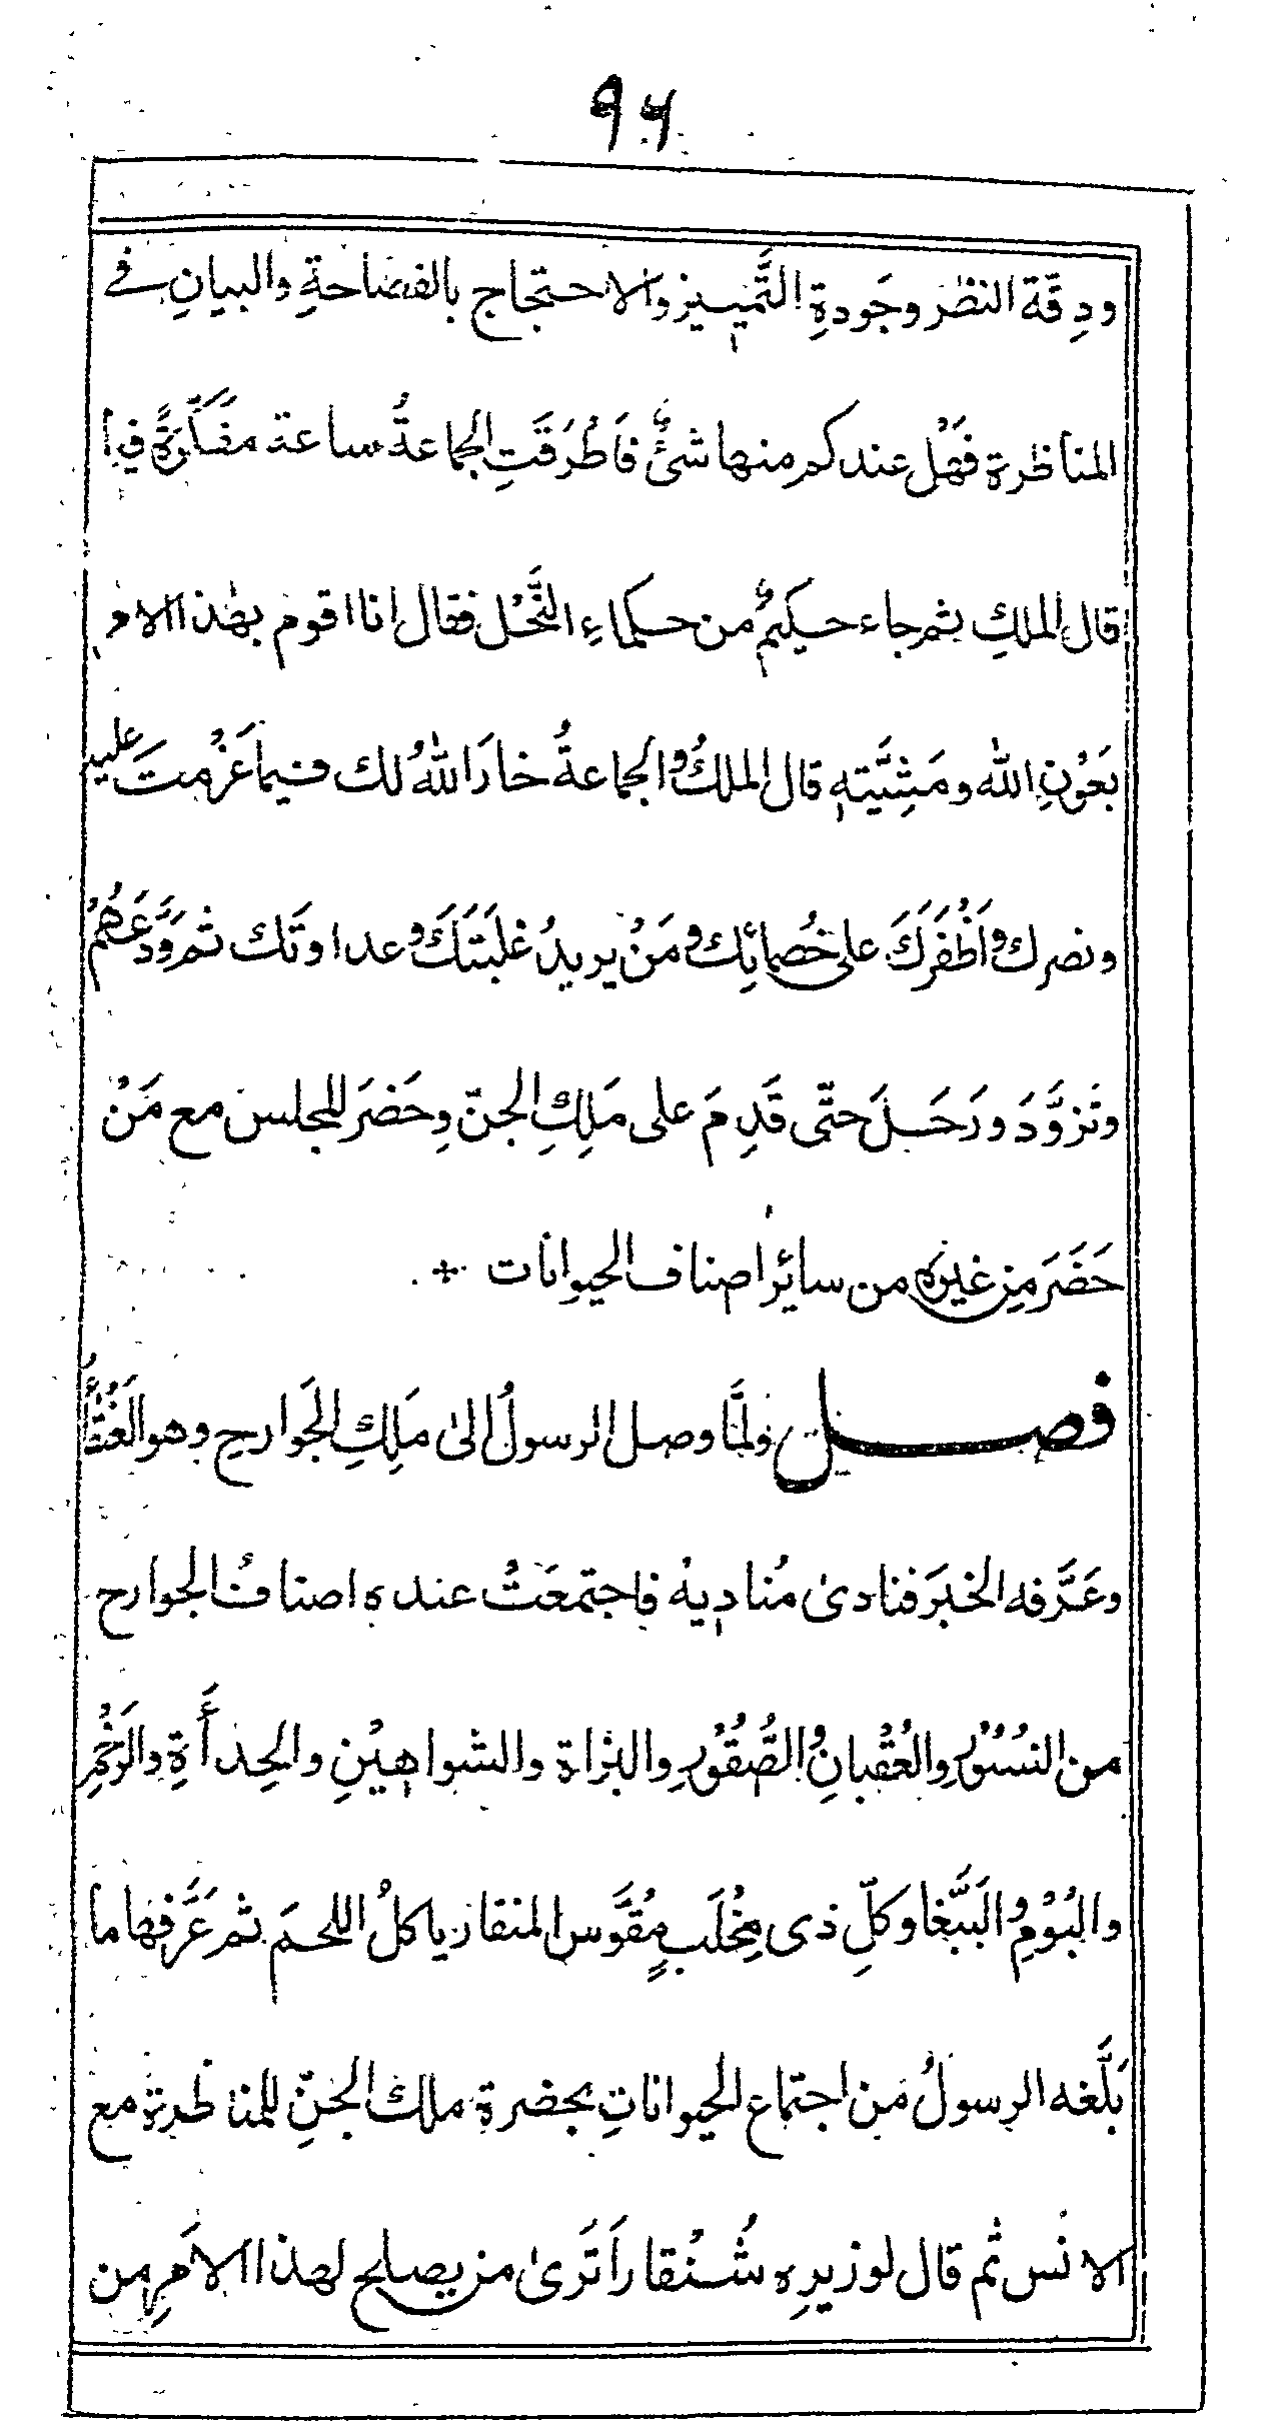 ۹۶
ودِقَّة النظر وجَودةِ التَّمييز والاحتجاج بالفصاحةِ والبيانِ في
المناظرة فهَلْ عندكم منها شئٌ فَاَطْرَقَتِ الجماعةُ ساعة مفَكِّرَةً فيما
قال الملكِ ثم جاء حكيمٌ من حكماءِ النَّحْل فقال انا اقوم بهٰذا الامر
بعَوْنِ الله ومَشِيَّتهٖ قال الملكُ والجماعةُ خارَ اللهُ لك فيما عَزَمْتَ عليه
ونصرك واَظْفَرَكَ على خُصمائِك ومَنْ يريدُ غلَبَتَكَ وعداوتَك ثم وَدَّعَهُمْ
وتَزوَّدَ ورَحَلَ حتّى قَدِمَ على مَلِكِ الجنّ وحَضَرَ المجلس مع مَنْ
حَضَرَ مِن غيرِهٖ من سائر اصناف الحيوانات
فصل ولمَّا وصل الرسولُ الىٰ مَلِكِ الجَوارِحِ وهو العَنْقَاُ
وعَرَّفه الخبَرَ فنادىٰ مُنادِيهٖ فاجتمعَتْ عنده اصنافُ الجوارح
من النسُوْرِ والعُقْبانِ والصُّقُوْرِ والبُزاة والشواهِيْنِ والحِدأَةِ والرَخْمِ
والبُوْمِ والبَبَّغا وكلِّ ذى مِخْلَبٍ مُقَوَّسِ المنقار ياكلُ اللحمَ ثم عَرَّفها ما
بَلَّغه الرسولُ مَن اجتماع الحيواناتِ بحضرة ملك الجنِّ للمناظرة مع
الانس ثم قال لوزيرِهٖ شُنْقار اَتَرىٰ من يصلح لهذا الاَمرِ من